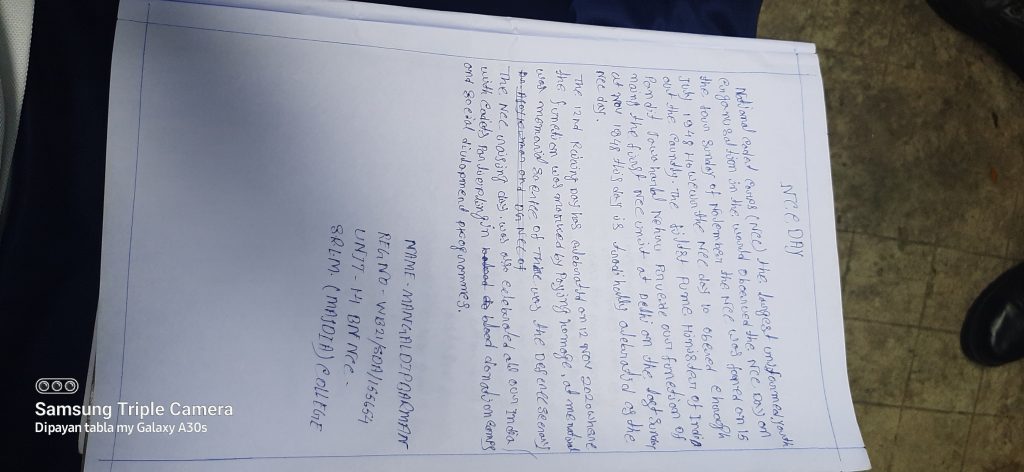 NCC DAY
National cadet corps (NCC) the largest oniformed, youth
Organusation in the would observed the NCC Day on
the down Sunday of November the NCC was formed on 15
July 1948 However the NCC day is obered ehrough
out the Country. The first Prime Minister of India
Pandit Jawaharlal Nehru Preside over function of
the first NCC unit at Delhi on the last Sunday
at NOV 1948 this day is traditionally celebrated as the
NCC day.
The 72nd Raising Day has celebrated on 12 NOV 2020 where
the function was marked by Paying homage at
was memorial science of was the Defence
The NCC raising day was also celebrated all over India
with cadets Partierpting in blood donation camps
and social diplopment programmes.
NAME - MANGALDIPA
REG NO - WB21/SDA/155654
UNIT - 14 BN NCC -
SRLM (MAJDIA) COLLEGE
Samsung Triple Camera
Dipayan tabla my Galaxy A30s